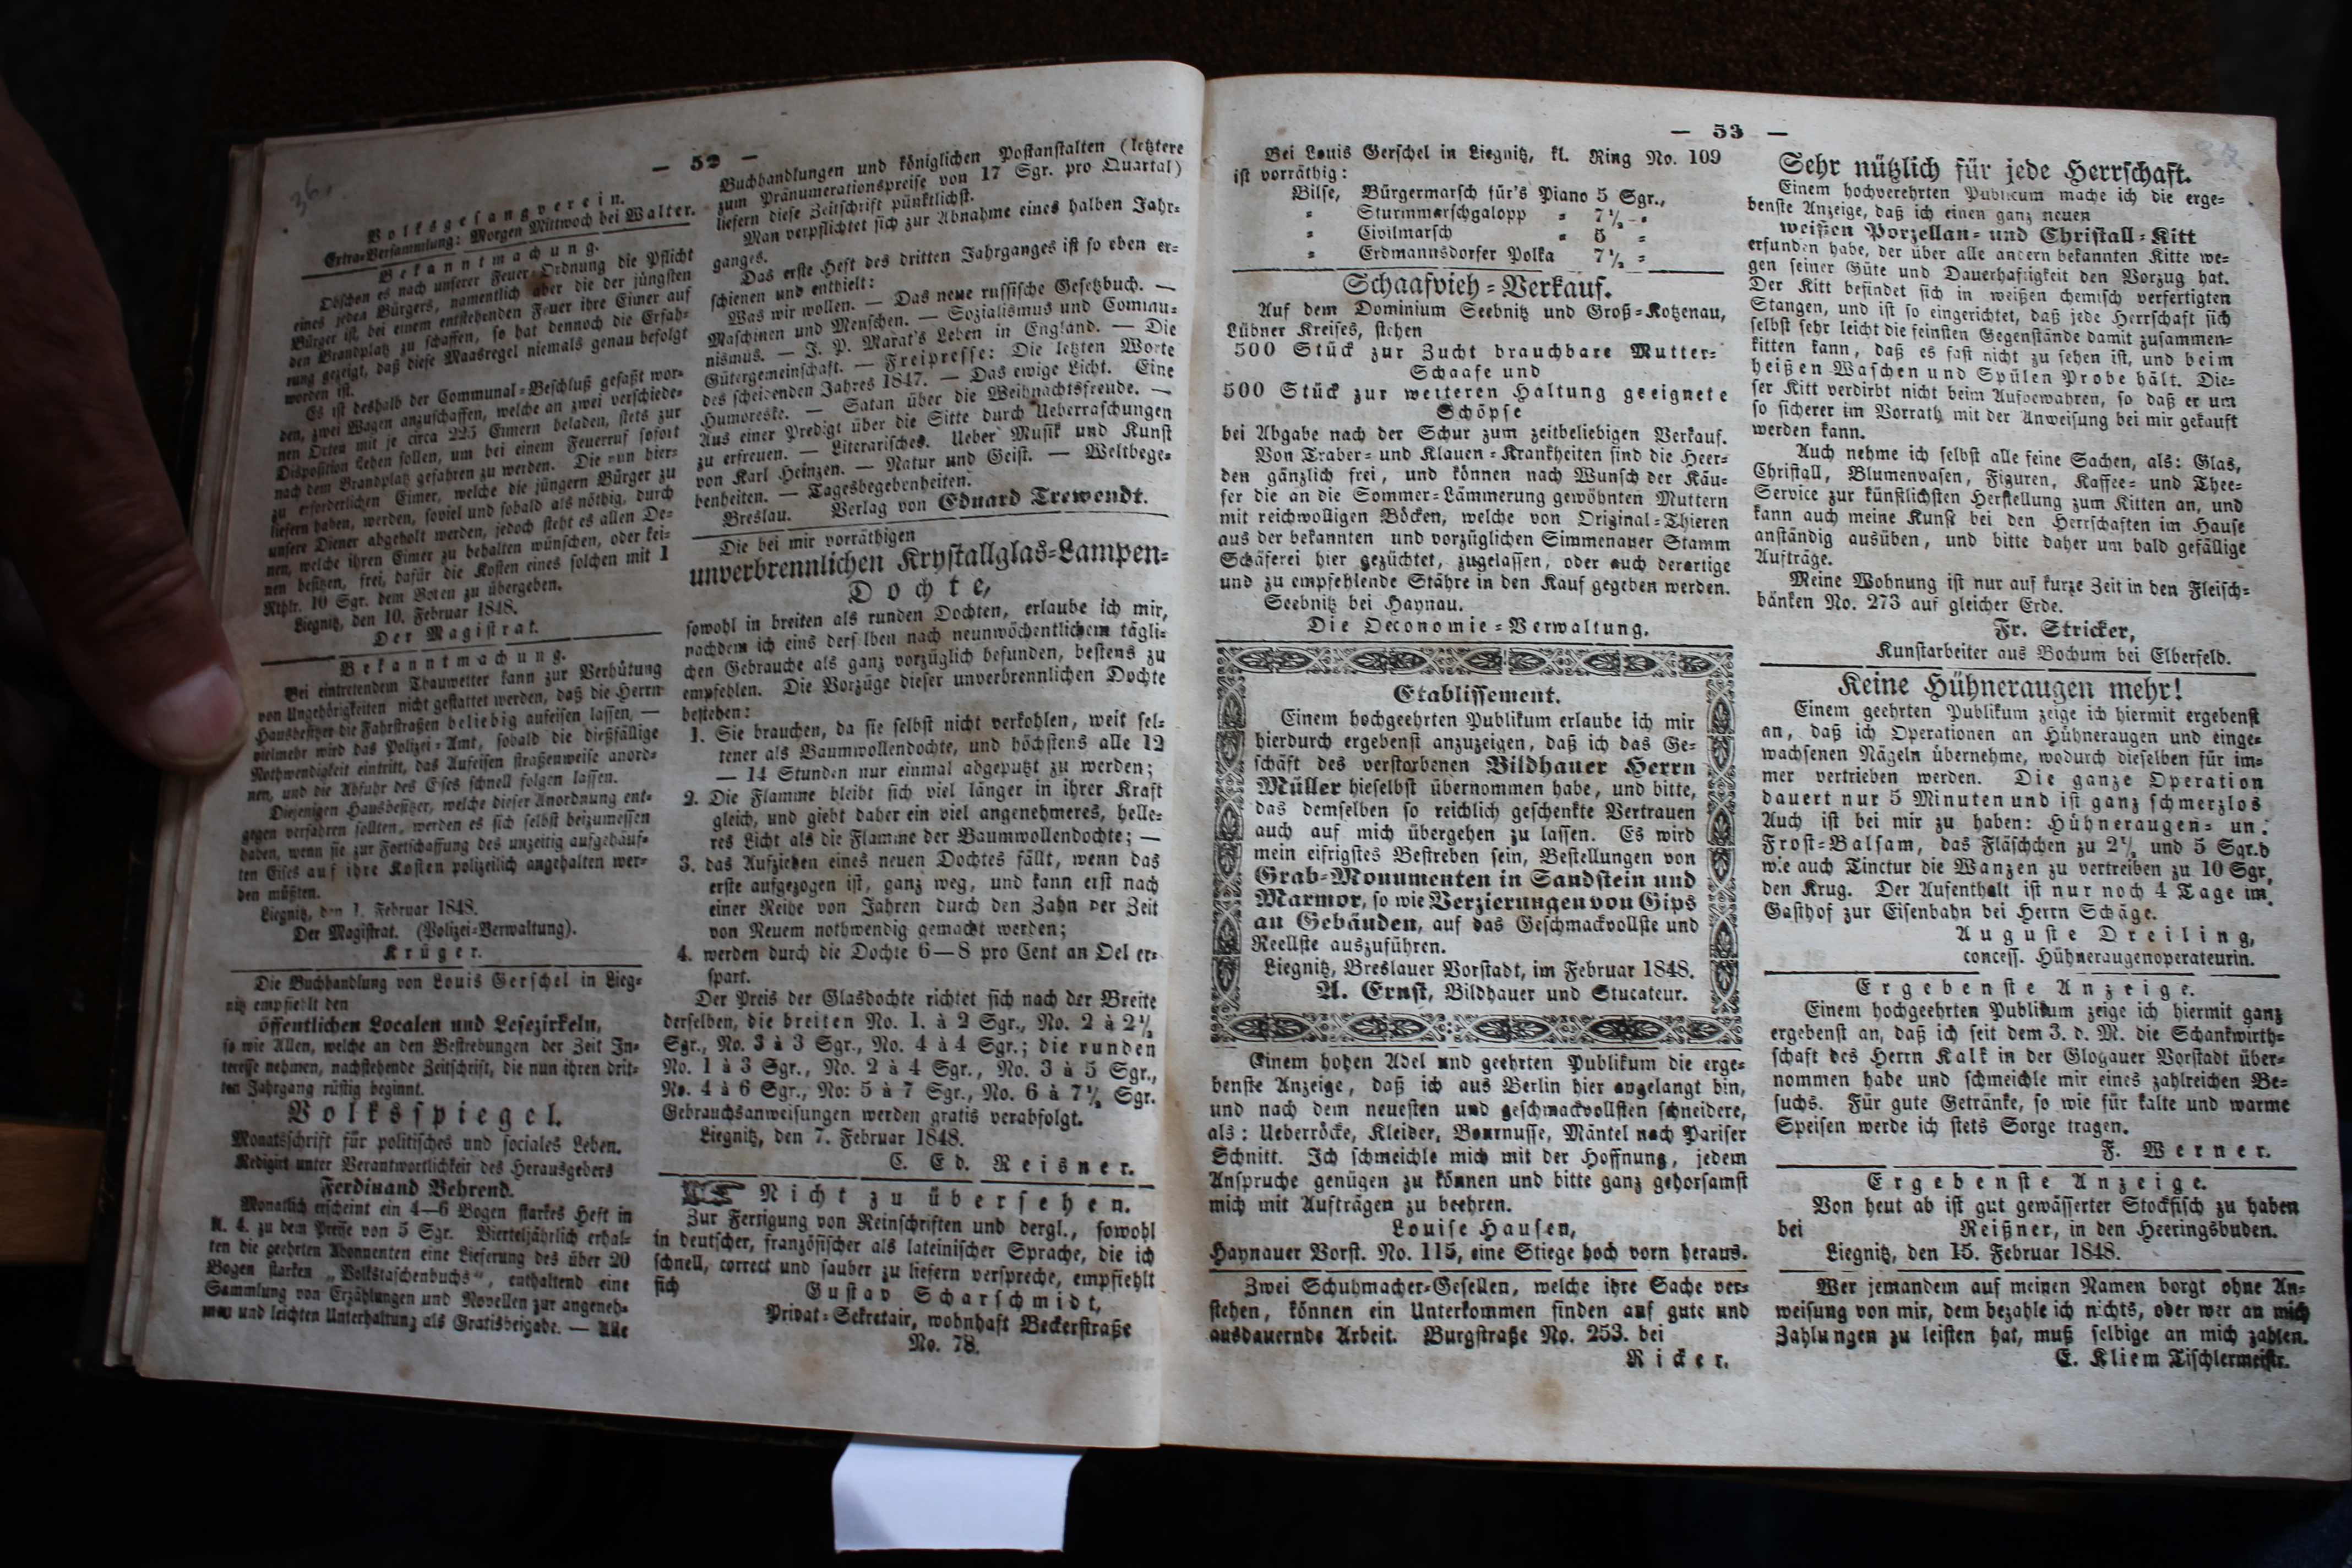 36.
— 52 —
Volksgesangverein.
Extra-Versammlung: Morgen Mittwoch bei Walter.
Bekanntmachung.
Obschon es nach unserer Feuer-Ordnung die Pflicht
eines jeden Bürgers, namentlich aber die der jüngsten
Bürger ist, bei einem entstehenden Feuer ihre Eimer auf
den Brandplatz zu schaffen, so hat dennoch die Erfah-
rung gezeigt, daß diese Maasregel niemals genau befolgt
worden ist.
Es ist deshalb der Communal-Beschluß gefaßt wor-
den, zwei Wagen anzuschaffen, welche an zwei verschiede-
nen Orten mit je circa 225 Eimern beladen, stets zur
Disposition stehen sollen, um bei einem Feuerruf sofort
nach dem Brandplatz gefahren zu werden. Die von hier-
zu erforderlichen Eimer, welche die jüngern Bürger zu
liefern haben, werden, soviel und sobald als nöthig, durch
unsere Diener abgeholt werden, jedoch steht es allen De-
nen, welche ihren Eimer zu behalten wünschen, oder kei-
nen besitzen, frei, dafür die Kosten eines solchen mit 1
Rthlr. 10 Sgr. dem Boten zu übergeben.
Liegnitz, den 10. Februar 1848.
Der Magistrat.
Bekanntmachung.
Bei eintretendem Thauwetter kann zur Verhütung
von Ungehörigkeiten nicht gestattet werden, daß die Herrn
Hausbesitzer die Fahrstraßen beliebig aufeisen lassen, —
vielmehr wird das Polizei-Amt, sobald die dießfällige
Nothwendigkeit eintritt, das Aufeisen straßenweise anord-
nen, und die Abfuhr des Eises schnell folgen lassen.
Diejenigen Hausbesitzer, welche dieser Anordnung ent-
gegen verfahren sollten, werden es sich selbst beizumessen
haben, wenn sie zur Fortschaffung des unzeitig aufgehäuf-
ten Eises auf ihre Kosten polizeilich angehalten wer-
den müßten.
Liegnitz, den 1. Februar 1848.
Der Magistrat. (Polizei-Verwaltung).
Krüger.
Die Buchhandlung von Louis Gerschel in Lieg-
nitz empfiehlt den
öffentlichen Localen und Lesezirkeln,
so wie Allen, welche an den Bestrebungen der Zeit In-
teresse nehmen, nachstehende Zeitschrift, die nun ihren drit-
ten Jahrgang rüstig beginnt.
Volksspiegel.
Monatsschrift für politisches und sociales Leben.
Redigirt unter Verantwortlichkeit des Herausgebers
Ferdinand Behrend.
Monatlich erscheint ein 4—6 Bogen starkes Heft in
A. 4. zu dem Preise von 5 Sgr. Vierteljährlich erhal-
ten die geehrten Abonnenten eine Lieferung des über 20
Bogen starken „Volkstaschenbuchs“, enthaltend eine
Sammlung von Erzählungen und Novellen zur angeneh-
men und leichten Unterhaltung als Gratisbeigabe. — Alle
Buchhandlungen und königlichen Postanstalten (letztere
zum Pränumerationspreise von 17 Sgr. pro Quartal)
liefern diese Zeitschrift pünktlichst.
Man verpflichtet sich zur Abnahme eines halben Jahr-
ganges.
Das erste Heft des dritten Jahrganges ist so eben er-
schienen und enthielt:
Was wir wollen. — Das neue russische Gesetzbuch. —
Maschinen und Menschen. — Sozialismus und Commu-
nismus. — J. P. Marat's Leben in England. — Die
Gütergemeinschaft. — Freipresse: Die letzten Worte
des scheidenden Jahres 1847. — Das ewige Licht. Eine
Humoreske. — Satan über die Weihnachtsfreude. —
Aus einer Predigt über die Sitte durch Ueberraschungen
zu erfreuen. — Literarisches. Ueber Musik und Kunst
von Karl Heinzen. — Natur und Geist. — Weltbege-
benheiten. — Tagesbegebenheiten.
Breslau. Verlag von Eduard Trewendt.
Die bei mir vorräthigen
unverbrennlichen Krystallglas-Lampen-
Dochte,
sowohl in breiten als runden Dochten, erlaube ich mir,
nachdem ich eins derselben nach neunwöchentlichem tägli-
chen Gebrauche als ganz vorzüglich befunden, bestens zu
empfehlen. Die Vorzüge dieser unverbrennlichen Dochte
bestehen:
1. Sie brauchen, da sie selbst nicht verkohlen, weit sel-
tener als Baumwollendochte, und höchstens alle 12
— 14 Stunden nur einmal abgeputzt zu werden;
2. Die Flamme bleibt sich viel länger in ihrer Kraft
gleich, und giebt daher ein viel angenehmeres, helle-
res Licht als die Flamme der Baumwollendochte; —
3. das Aufziehen eines neuen Dochtes fällt, wenn das
erste aufgezogen ist, ganz weg, und kann erst nach
einer Reihe von Jahren durch den Zahn der Zeit
von Neuem nothwendig gemacht werden;
4. werden durch die Dochte 6—8 pro Cent an Oel er-
spart.
Der Preis der Glasdochte richtet sich nach der Breite
derselben, die breiten No. 1. à 2 Sgr., No. 2 à 2½
Sgr., No. 3 à 3 Sgr., No. 4 à 4 Sgr.; die runden
No. 1 à 3 Sgr., No. 2 à 4 Sgr., No. 3 à 5 Sgr.,
No. 4 à 6 Sgr., No: 5 à 7 Sgr., No. 6 à 7½ Sgr.
Gebrauchsanweisungen werden gratis verabfolgt.
Liegnitz, den 7. Februar 1848.
C. Ed. Reisner.
Nicht zu übersehen.
Zur Fertigung von Reinschriften und dergl., sowohl
in deutscher, französischer als lateinischer Sprache, die ich
schnell, correct und sauber zu liefern verspreche, empfiehlt
sich
Gustav Scharschmidt,
Privat-Sekretair, wohnhaft Beckerstraße
No. 78.
— 53 —
Bei Louis Gerschel in Liegnitz, kl. Ring No. 109
ist vorräthig:
Bilse, Bürgermarsch für's Piano 5 Sgr.,
= Sturmmarschgalopp = 7½ =
= Civilmarsch = 5 =
= Erdmannsdorfer Polka 7½ =
Schaafvieh-Verkauf.
Auf dem Dominium Seebnitz und Groß-Kotzenau,
Lübner Kreises, stehen
500 Stück zur Zucht brauchbare Mutter-
Schaafe und
500 Stück zur weiteren Haltung geeignete
Schöpse
bei Abgabe nach der Schur zum zeitbeliebigen Verkauf.
Von Traber- und Klauen-Krankheiten sind die Heer-
den gänzlich frei, und können nach Wunsch der Käu-
fer die an die Sommer-Lämmerung gewöhnten Muttern
mit reichwolligen Böcken, welche von Original-Thieren
aus der bekannten und vorzüglichen Simmenauer Stamm
Schäferei hier gezüchtet, zugelassen, oder auch derartige
und zu empfehlende Stähre in den Kauf gegeben werden.
Seebnitz bei Haynau.
Die Oeconomie-Verwaltung.
Etablissement.
Einem hochgeehrten Publikum erlaube ich mir
hierdurch ergebenst anzuzeigen, daß ich das Ge-
schäft des verstorbenen Bildhauer Herrn
Müller hieselbst übernommen habe, und bitte,
das demselben so reichlich geschenkte Vertrauen
auch auf mich übergehen zu lassen. Es wird
mein eifrigstes Bestreben sein, Bestellungen von
Grab-Monumenten in Sandstein und
Marmor, so wie Verzierungen von Gips
an Gebäuden, auf das Geschmackvollste und
Reellste auszuführen.
Liegnitz, Breslauer Vorstadt, im Februar 1848.
A. Ernst, Bildhauer und Stucateur.
Einem hohen Adel und geehrten Publikum die erge-
benste Anzeige, daß ich aus Berlin hier angelangt bin,
und nach dem neuesten und geschmackvollsten schneidere,
als: Ueberröcke, Kleider, Bournusse, Mäntel nach Pariser
Schnitt. Ich schmeichle mich mit der Hoffnung, jedem
Anspruche genügen zu können und bitte ganz gehorsamst
mich mit Aufträgen zu beehren.
Louise Hausen,
Haynauer Vorst. No. 115, eine Stiege hoch vorn heraus.
Zwei Schuhmacher-Gesellen, welche ihre Sache ver-
stehen, können ein Unterkommen finden auf gute und
ausdauernde Arbeit. Burgstraße No. 253. bei
Ricker.
Sehr nützlich für jede Herrschaft.
Einem hochverehrten Publicum mache ich die erge-
benste Anzeige, daß ich einen ganz neuen
weißen Porzellan- und Christall-Kitt
erfunden habe, der über alle andern bekannten Kitte we-
gen seiner Güte und Dauerhaftigkeit den Vorzug hat.
Der Kitt befindet sich in weißen chemisch verfertigten
Stangen, und ist so eingerichtet, daß jede Herrschaft sich
selbst sehr leicht die feinsten Gegenstände damit zusammen-
kitten kann, daß es fast nicht zu sehen ist, und beim
heißen Waschen und Spülen Probe hält. Die-
ser Kitt verdirbt nicht beim Aufbewahren, so daß er um
so sicherer im Vorrath mit der Anweisung bei mir gekauft
werden kann.
Auch nehme ich selbst alle feine Sachen, als: Glas,
Christall, Blumenvasen, Figuren, Kaffee- und Thee-
Service zur künstlichsten Herstellung zum Kitten an, und
kann auch meine Kunst bei den Herrschaften im Hause
anständig ausüben, und bitte daher um bald gefällige
Aufträge.
Meine Wohnung ist nur auf kurze Zeit in den Fleisch-
bänken No. 273 auf gleicher Erde.
Fr. Stricker,
Kunstarbeiter aus Bochum bei Elberfeld.
Keine Hühneraugen mehr!
Einem geehrten Publikum zeige ich hiermit ergebenst
an, daß ich Operationen an Hühneraugen und einge-
wachsenen Nägeln übernehme, wodurch dieselben für im-
mer vertrieben werden. Die ganze Operation
dauert nur 5 Minuten und ist ganz schmerzlos
Auch ist bei mir zu haben: Hühneraugen- un:
Frost-Balsam, das Fläschchen zu 2½ und 5 Sgr.d
wie auch Tinctur die Wanzen zu vertreiben zu 10 Sgr.
den Krug. Der Aufenthalt ist nur noch 4 Tage im
Gasthof zur Eisenbahn bei Herrn Schäge.
Auguste Dreiling,
concess. Hühneraugenoperateurin.
Ergebenste Anzeige.
Einem hochgeehrten Publikum zeige ich hiermit ganz
ergebenst an, daß ich seit dem 3. d. M. die Schankwirth-
schaft des Herrn Kalk in der Glogauer Vorstadt über-
nommen habe und schmeichle mir eines zahlreichen Be-
suchs. Für gute Getränke, so wie für kalte und warme
Speisen werde ich stets Sorge tragen.
F. Werner.
Ergebenste Anzeige.
Von heut ab ist gut gewässerter Stockfisch zu haben
bei Reißner, in den Heeringsbuden.
Liegnitz, den 15. Februar 1848.
Wer jemandem auf meinen Namen borgt ohne An-
weisung von mir, dem bezahle ich nichts, oder wer an mich
Zahlungen zu leisten hat, muß selbige an mich zahlen.
E. Kliem Tischlermeistr.